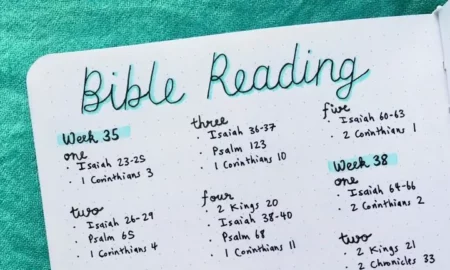 Bible Reading
Week 35
one
• Isaiah 23-25
• 1 Corinthians 3
two
• Isaiah 26-29
• Psalm 65
• 1 Corinthians 4
three
• Isaiah 36-37
• Psalm 123
• 1 Corinthians 10
four
• 2 Kings 20
• Isaiah 38-40
• Psalm 68
• 1 Corinthians 11
five
• Isaiah 60-63
• 2 Corinthians 1
Week 38
one
• Isaiah 64-66
• 2 Corinthians 2
two
• 2 Kings 21
• 2 Chronicles 33